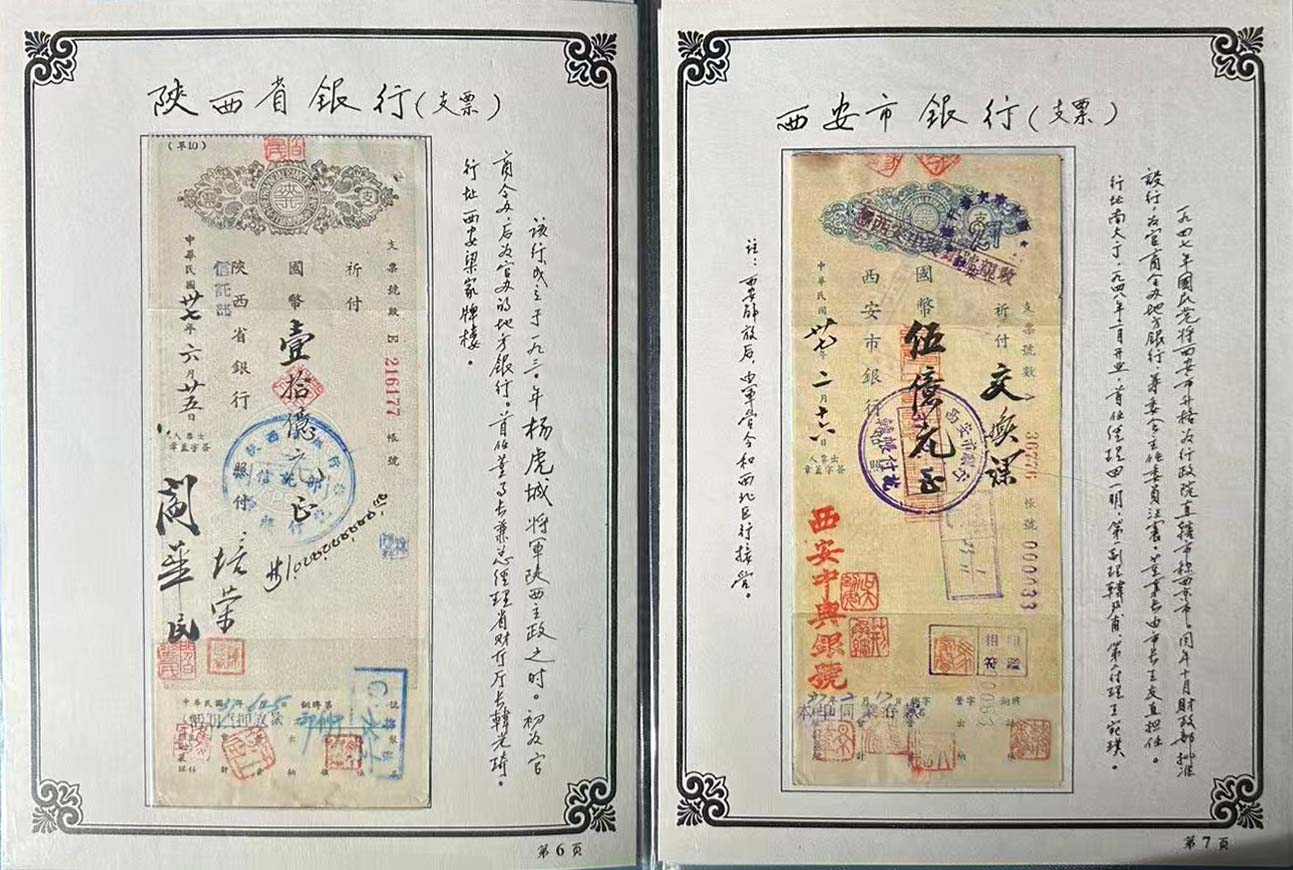 陕西省银行(支票)
该行成立于一九三〇年杨虎城将军陕西主政之时。初为官
商合办,后为官办的地方银行。首任董事长兼总经理省财政厅长韩光琦。
行址西安梁家牌楼。
(早10)
支
票
支票號數 E 216177 帳號
祈付
國幣壹拾億元正
陝西省銀行
信託部
照付
中華民國卅七年六月廿五日
出票人
簽字蓋章
閻華民
培荣
第6页
西安市银行(支票)
一九四七年国民党将西安市升格为行政院直辖市称西京市。同年十月财政部批准
设行,为官商合办地方银行,筹委会主任委员汪震,董事长由市长王友直担任。
行址南大街,一九四八年二月开业,首任经理田一明,第一副理韩,第二付理王宛璞。
註:西安解放后,由军管会和西北农行接管。
支票號數 A 36776 帳號 000033
祈付 交换課
國幣伍億元正
西安市銀行
中華民國卅七年二月十六日
出票人
簽字蓋章
西安中興銀號
印鑑
相符
第7页